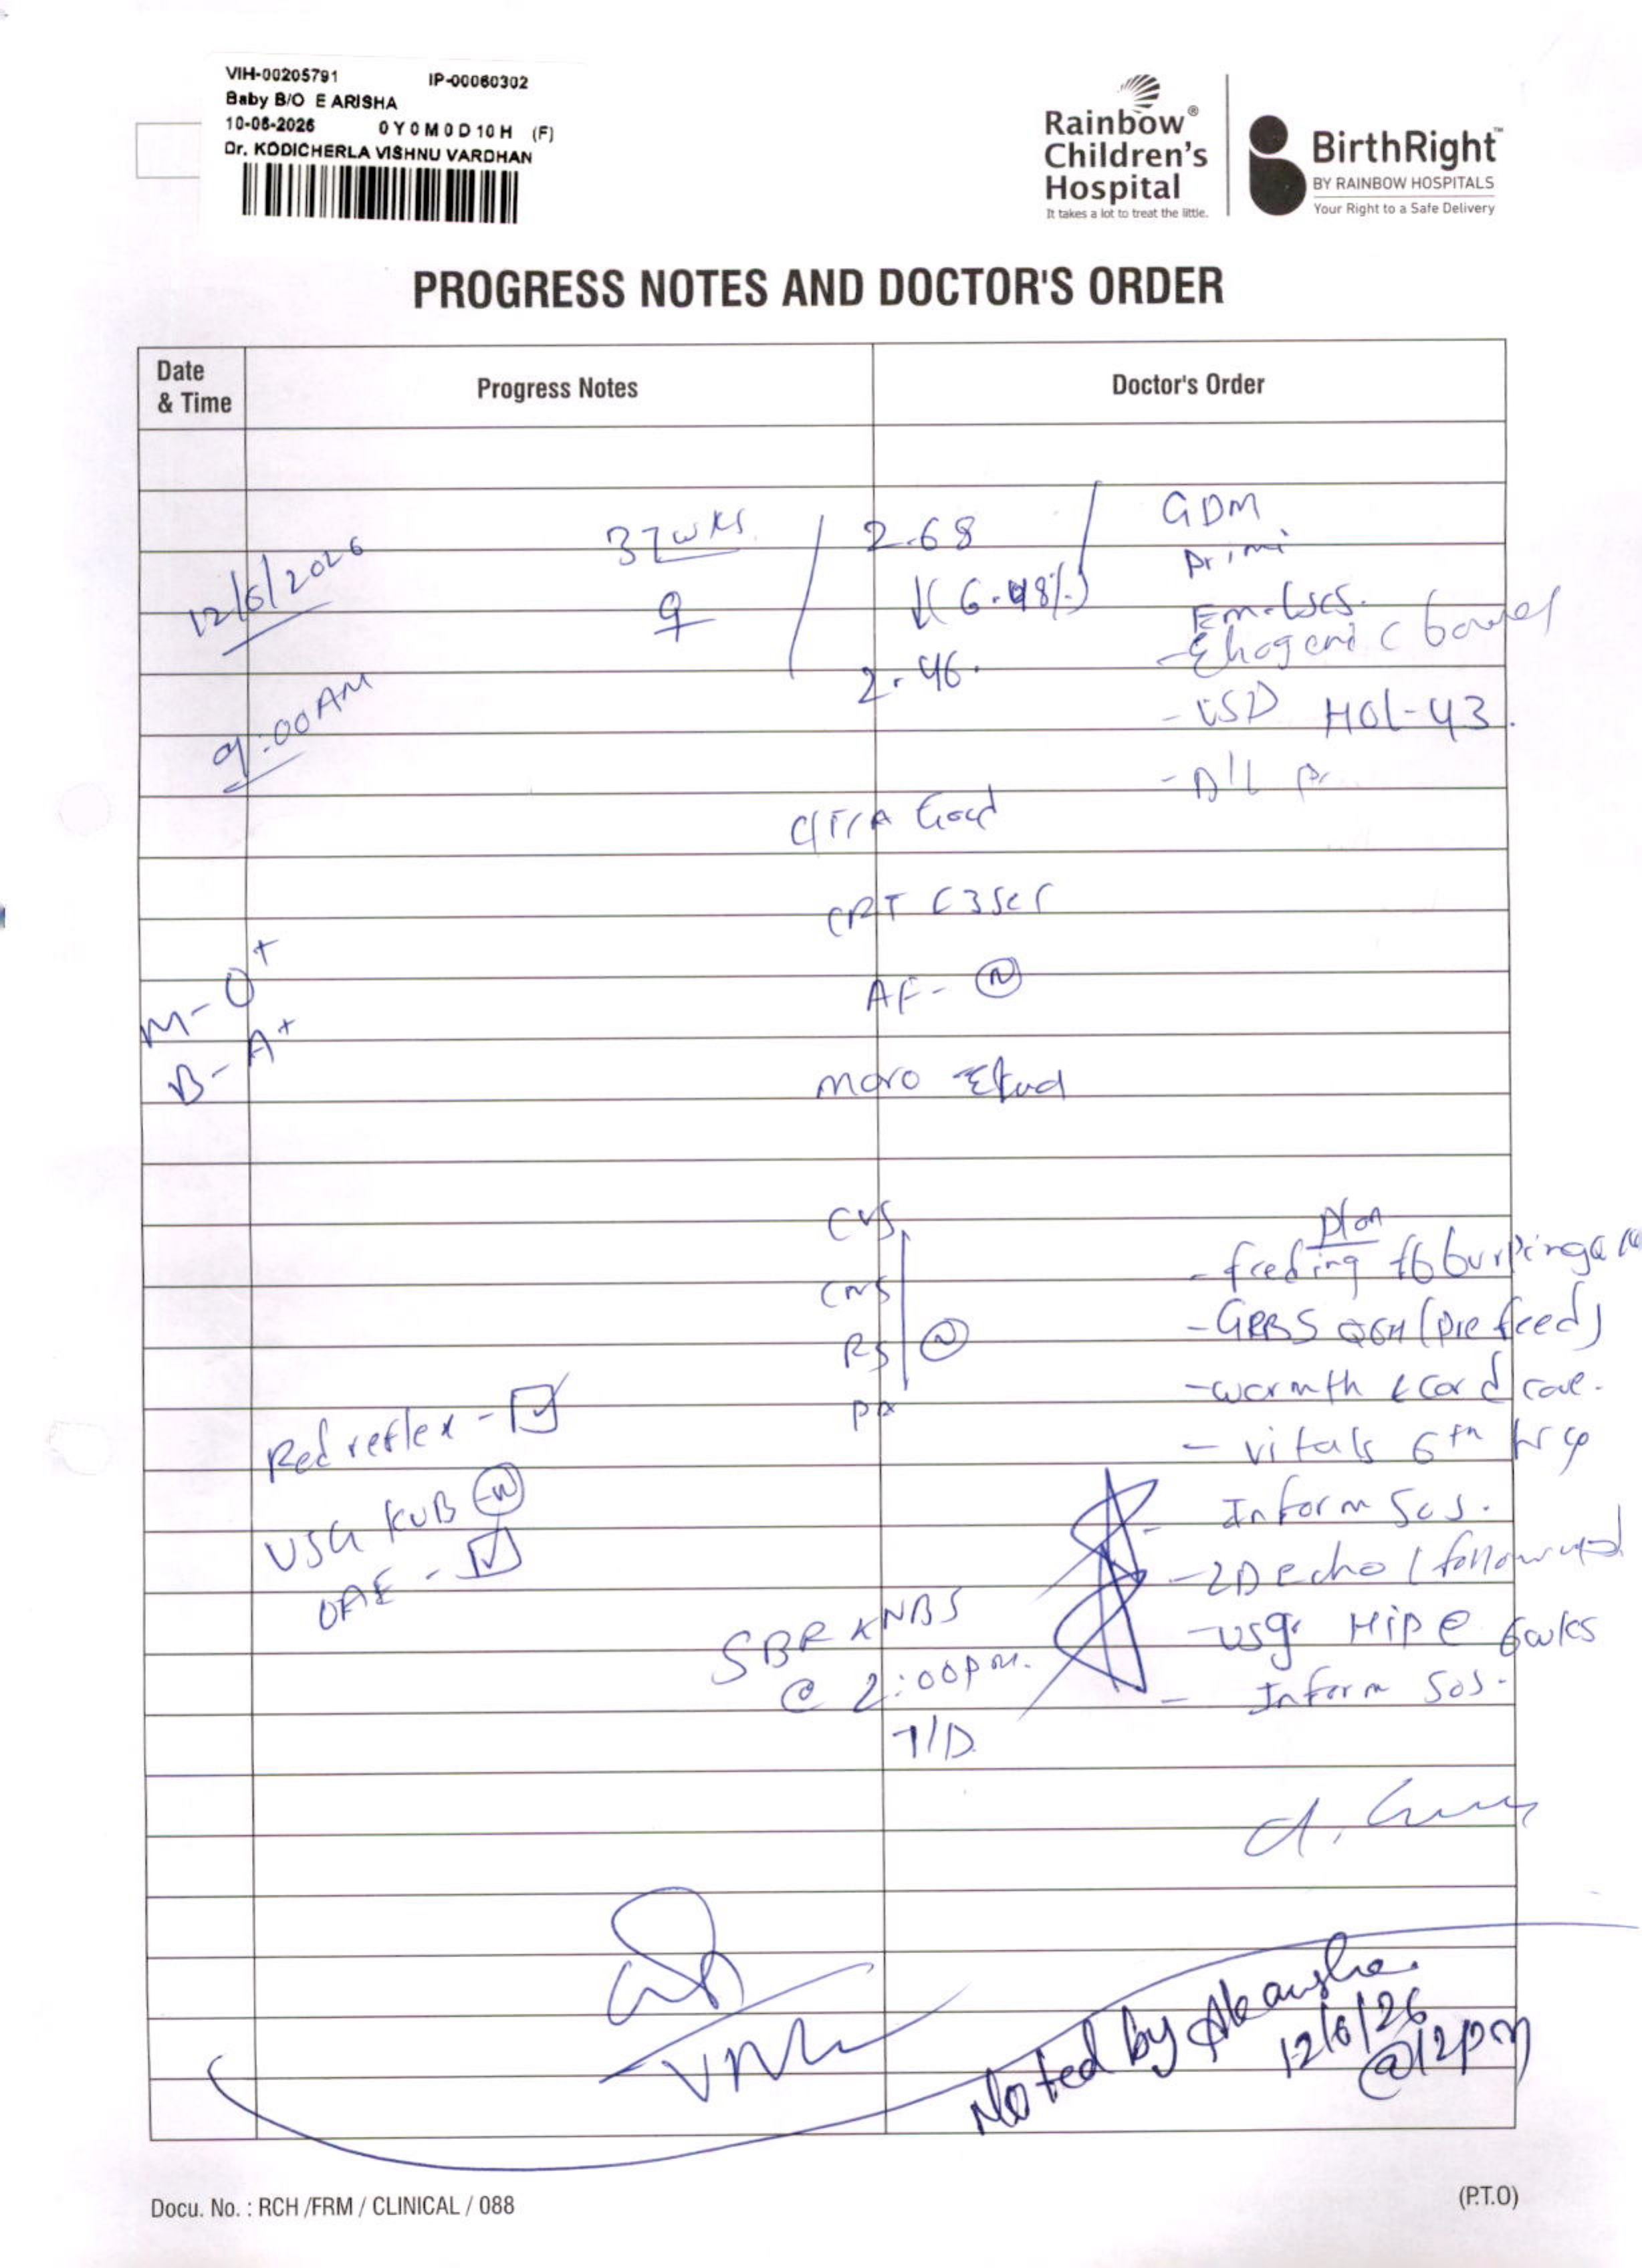 VIH-00205791 IP-00060302
Baby B/O E ARISHA
10-06-2026 0Y0M0D10H (F)
Dr. KODICHERLA VISHNU VARDHAN
Rainbow®
Children's
Hospital
It takes a lot to treat the little.
BirthRight™
BY RAINBOW HOSPITALS
Your Right to a Safe Delivery
PROGRESS NOTES AND DOCTOR'S ORDER
Date
& Time
Progress Notes
Doctor's Order
12/6/2026
9:00AM
37wks
♀
2.68
↓(6.48%)
2.46.
GDM
Primi
Em-LSCS.
- Ehogenic bowel
- VSD HOL-43.
C/T/A Good
CRT <3sec
AF- (N)
M- O+
B- A+
moro
CVS
CNS
RS (N)
PA
plan
- feeding fb burping
- GRBS Q6H (pre feed)
- warmth & cord care.
- vitals 6th hrly
- Inform SOS.
- 2D echo / followup
- usg Hip @ 6wks
- Inform SOS.
Red reflex - ☑
USG KUB (N)
OAE - ☑
SBR NBS
@ 2:00pm.
T/D
Noted by Akansha.
12/6/26
@12pm
Docu. No. : RCH /FRM / CLINICAL / 088
(P.T.O)